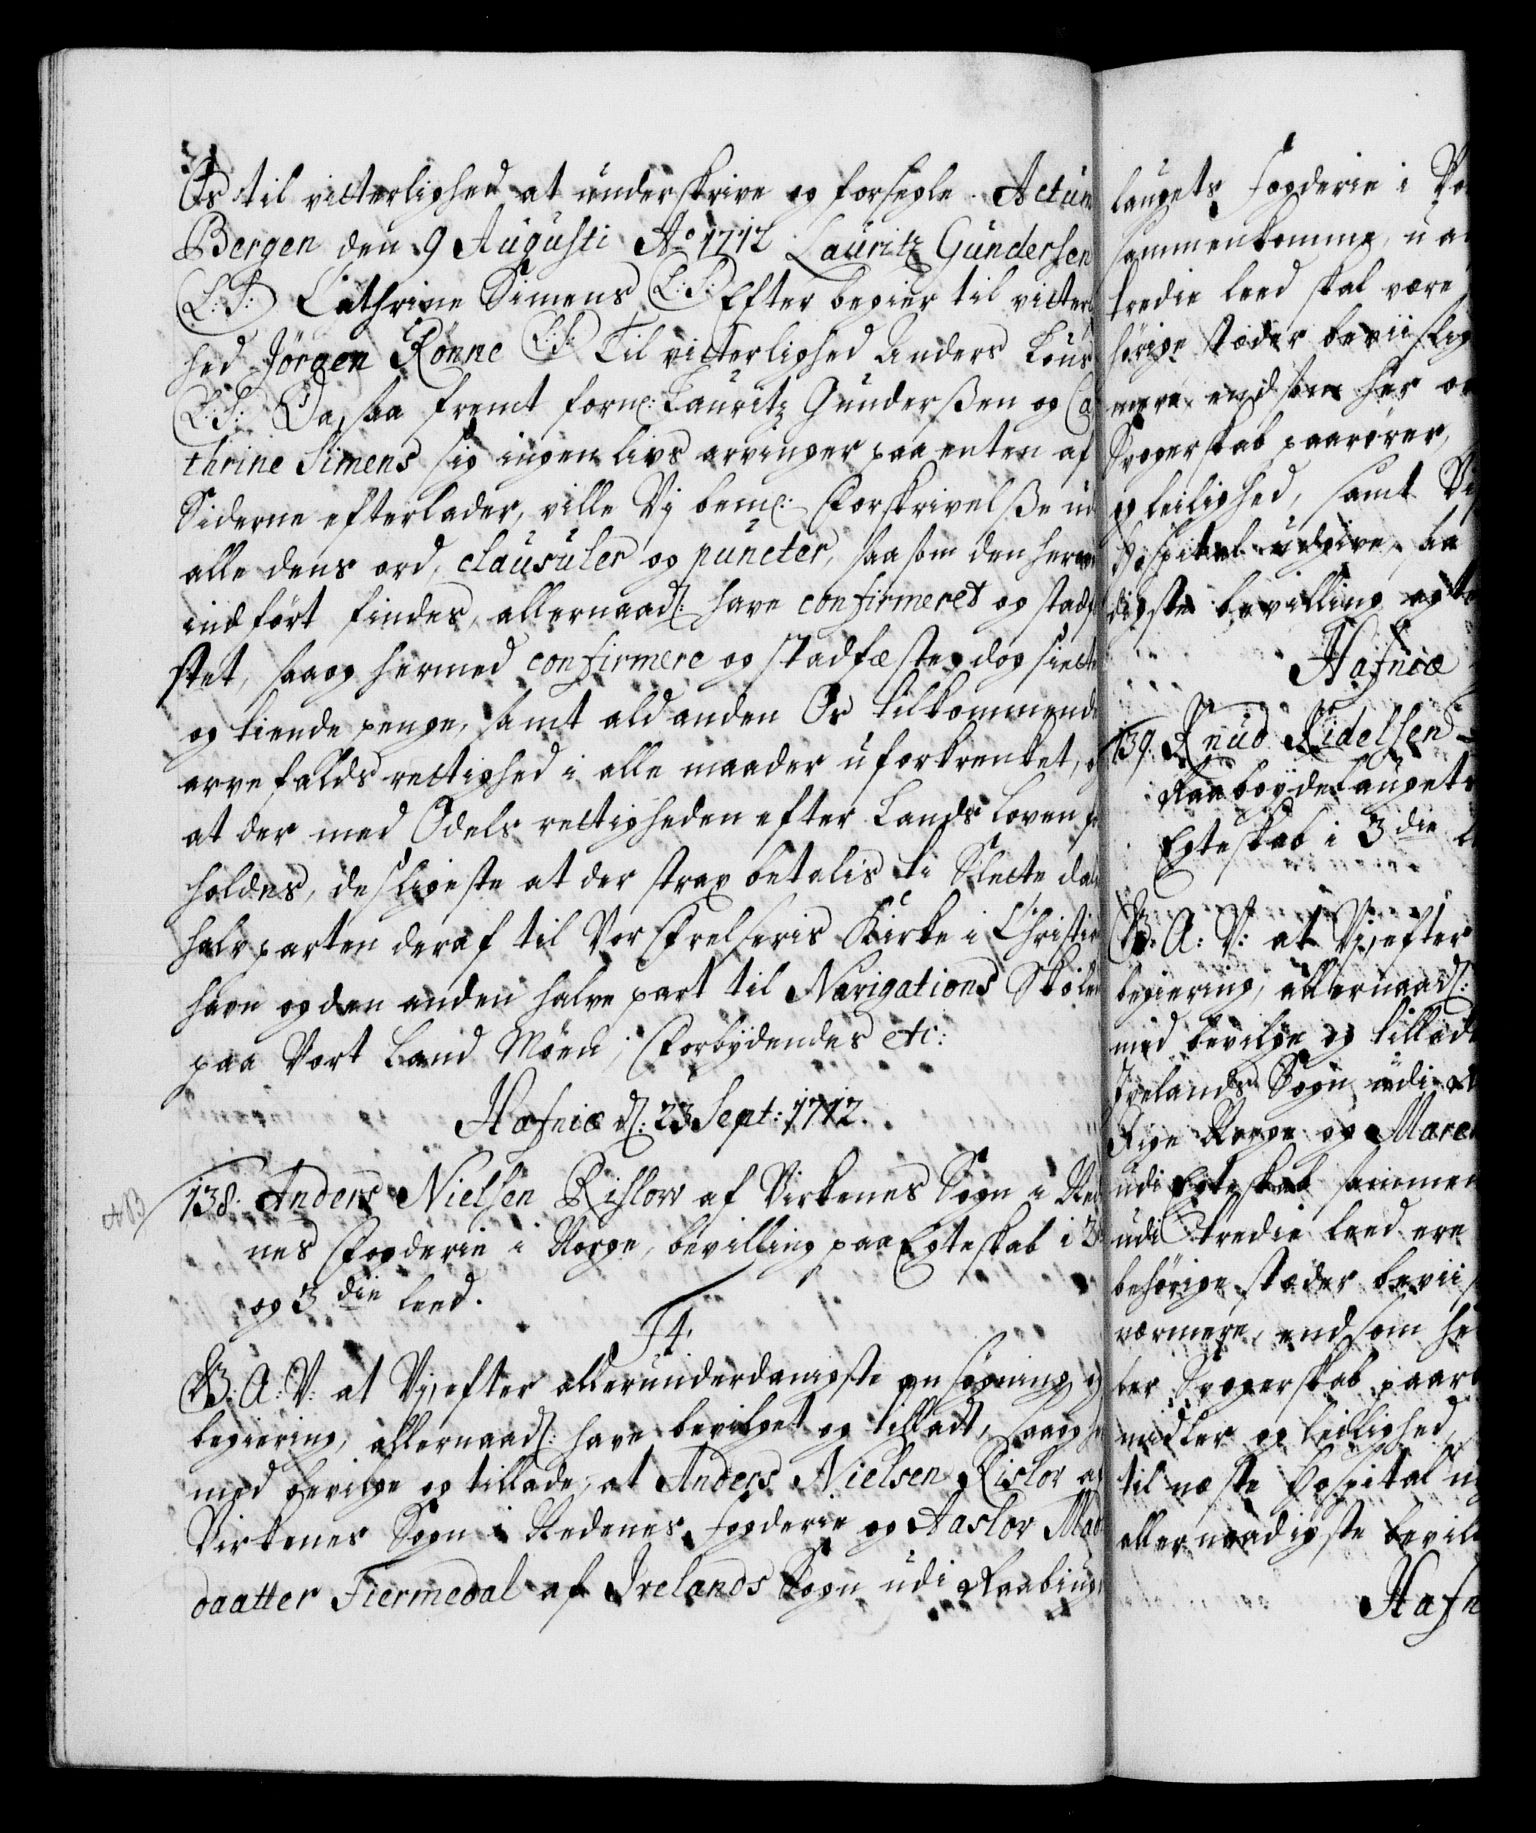 Os til vitterlighed at underskrive og forsegle. Actum
Bergen den 9 Augusti Ao 1712 Lauritz Gundersen
(L:S:) Cathrine Simens (L:S:) Efter begier til vitter
hed Jörgen Rönne (L:S:) Til vitterlighed Anders
(L:S:) Da, saa fremt forn: Lauritz Gunderßen og Ca
thrine Simens sig ingen livs arvinger paa enten af
Siderne efterlader, ville Vj bem: Forskrivelße ud
alle dens ord, clausuler og puncter, saasom den her
indfört findes, allernaad: have confirmeret og stadf
stet, saa og hermed confirmere og stadfæste, dog siette
og tiende penge, samt ald anden Os tilkommende
arvefalds rettighed i alle maader uforkrenket, og
at der med Odels rettigheden efter Lands Loven for
holdes, desligeste at der strax betalis ti Slette dal
halvparten deraf til Vor Frelseris Kirke i Christia
havn og den anden halve part til Navigations Skolen
paa Vort Land Möen; Forbydendes etc:
Hafniæ d: 23 Sept: 1712.
138. Anders Nielsen Rislow af Virkenes Sogn i Ned
nes Fogderie i Norge, bevilling paa Egteskab i 3
og 3die leed.
F4.
G: A: V: at Vj, efter allerunderdanigste ansögning og
begiering, allernaad: have bevilget og tilladt, saa og her
med bevilge og tillade, at Anders Nielsen Rislov af
Virkenes Sogn i Nedenes Fogderie og Aaslov Mad
daatter Fiermedal af Irelands Sogn udi Raabiug
laugets Fogderie i No
sammenkomme, u a
tredie leed skal være
hörige stæder beviislig
mere end som her
Svogerskab paarörer,
og leilighed, samt Vi
Hospital udgive, saa
digste bevilling
Hafniæ
139. Knud Kidelsen
Raabøydelaugets
Egteskab i 3die
G: A: V: at Vj, efter
begiering, allernaad:
med bevilge og tillad
Irelands Sogn udi
Rige Norge og Maren
udi Egteskab sammen
udi tredie leed ere
behörige stæder bevii
nærmere, end som he
ler Svogerskab paarö
midler og leilighed,
til næste Hospital
allernaadigste bevil
Hafn